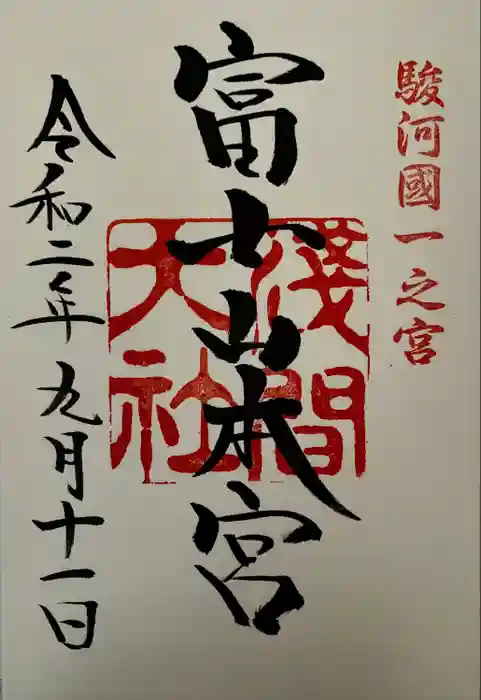 駿河國一之宮
富士山本宮
淺間
大社
令和二年九月十一日